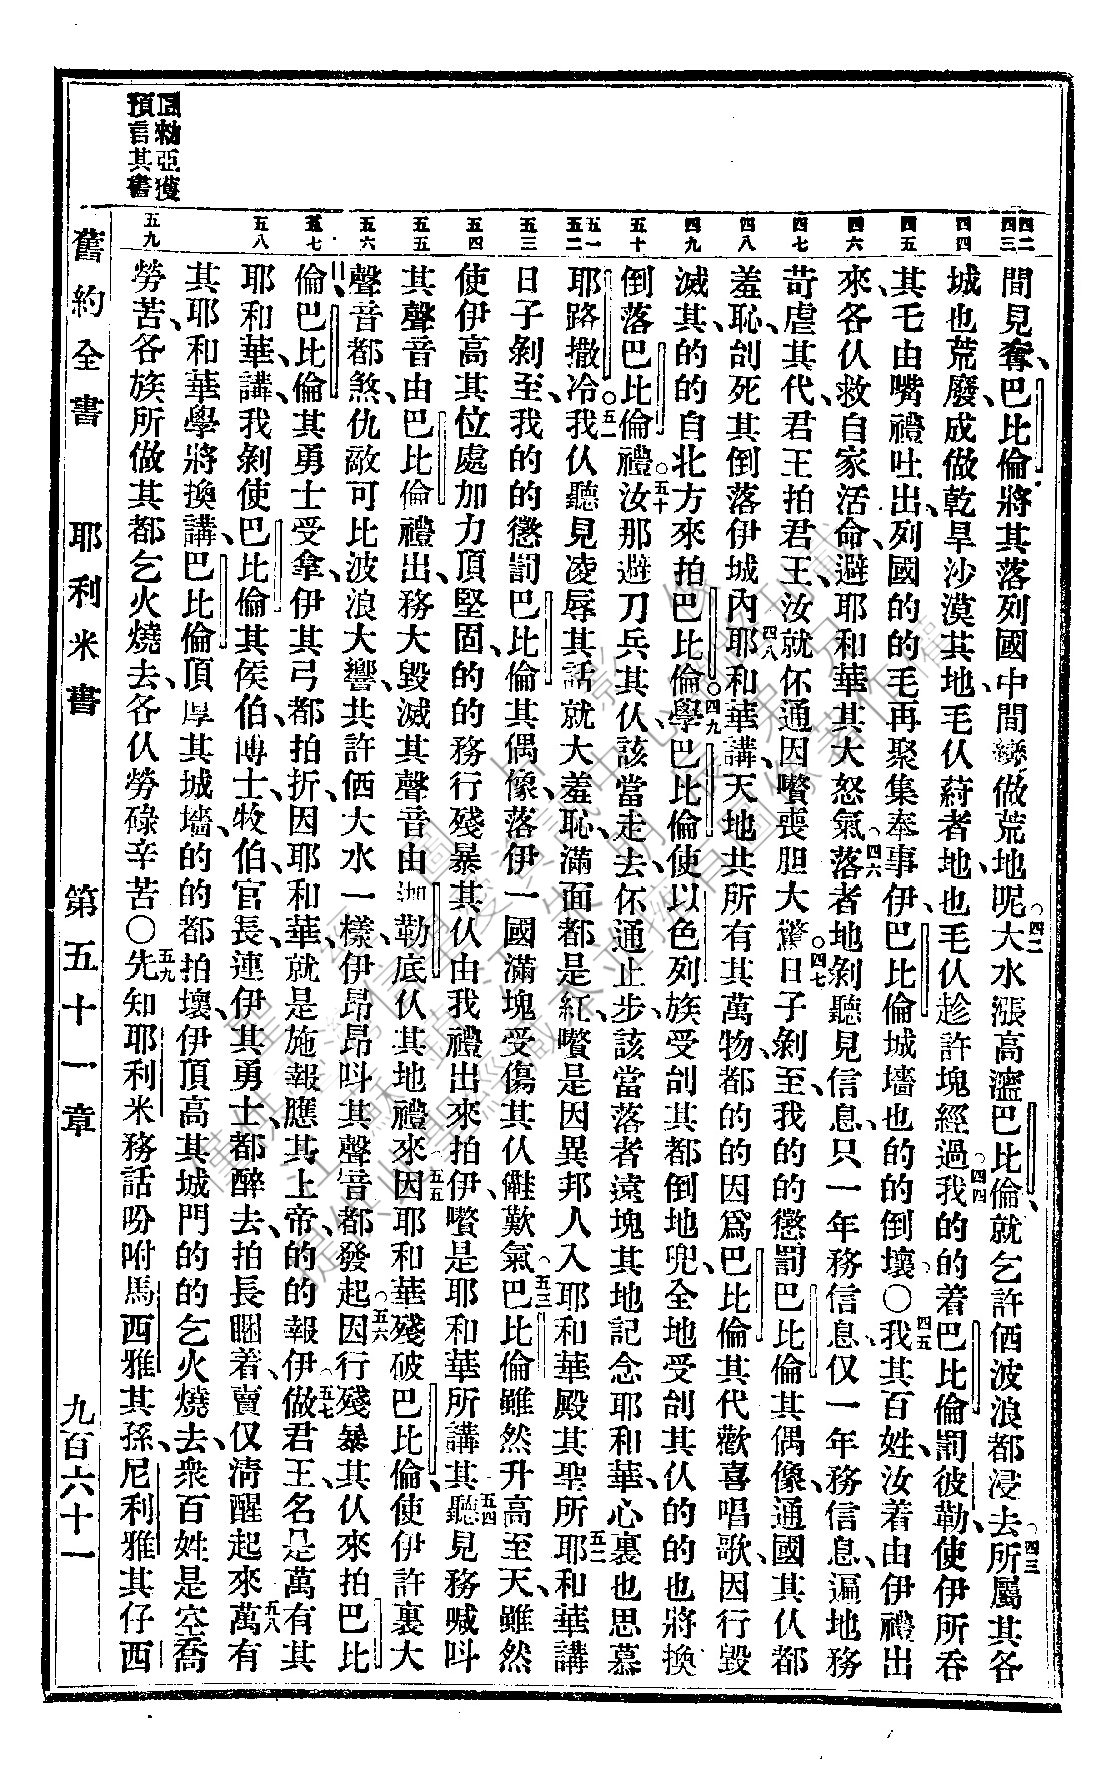 間見奪、巴比倫將其落列國中間變做荒地呢。四二大水漲高、瀊巴比倫、就乞許個波浪都浸去。四三所屬其各
城也荒廢、成做乾旱沙漠其地、毛伩蒔者地、也毛伩趁許塊經過。四四我的的着巴比倫罰彼勒、使伊所吞
其乇由嘴禮吐出、列國的的毛再聚集奉事伊、巴比倫城墻也的的倒壞。〇四五我其百姓、汝着由伊禮出
來、各伩救自家活命、避耶和華其大怒氣。四六落者地剝聽見信息、只一年務信息、仅一年務信息、遍地務
苛虐其代、君王拍君王、汝就伓通因嚽喪胆大驚。四七日子剝至、我的的懲罰巴比倫其偶像、通國其伩都
羞恥、刣死其倒落伊城內。四八耶和華講、天地共所有其萬物、都的的因爲巴比倫其代歡喜唱歌、因行毀
滅其、的的自北方來拍巴比倫。四九學巴比倫使以色列族受刣其都倒地兜、全地受刣其伩的的也將換
倒落巴比倫禮。五十汝那避刀兵其伩、該當走去、伓通止步、該當落者遠塊其地記念耶和華、心裏也思慕
耶路撒冷。五一我伩聽見凌辱其話、就大羞恥、滿面都是紅、嚽是因異邦人入耶和華殿其聖所。五二耶和華講
日子剝至、我的的懲罰巴比倫其偶像、落伊一國滿塊受傷其伩儺歎氣。五三巴比倫雖然升高至天、雖然
使伊高其位處加力頂堅固、的的務行殘暴其伩、由我禮出來拍伊、嚽是耶和華所講其。五四聽見務喊呌
其聲音由巴比倫禮出、務大毀滅其聲音由迦勒底伩其地禮來。五五因耶和華殘破巴比倫、使伊許裏大
聲音都煞、仇敵可比波浪大響、共許個大水一樣、伊昂昂呌其聲音都發起。五六因行殘暴其伩來拍巴比
倫、巴比倫其勇士受拿、伊其弓都拍折、因耶和華就是施報應其上帝、的的報伊。五七做君王、名是萬有其
耶和華講、我剝使巴比倫其侯伯、博士、牧伯、官長、連伊其勇士、都醉去、拍長睏着、賣仅淸醒起來。五八萬有
其耶和華學將換講、巴比倫頂厚其城墻的的都拍壞、伊頂高其城門的的乞火燒去、衆百姓是空喬
勞苦、各族所做其都乞火燒去、各伩勞碌辛苦。〇五九先知耶利米務話吩咐馬西雅其孫、尼利雅其仔西
舊約全書 耶利米書 第五十一章 九百六十一